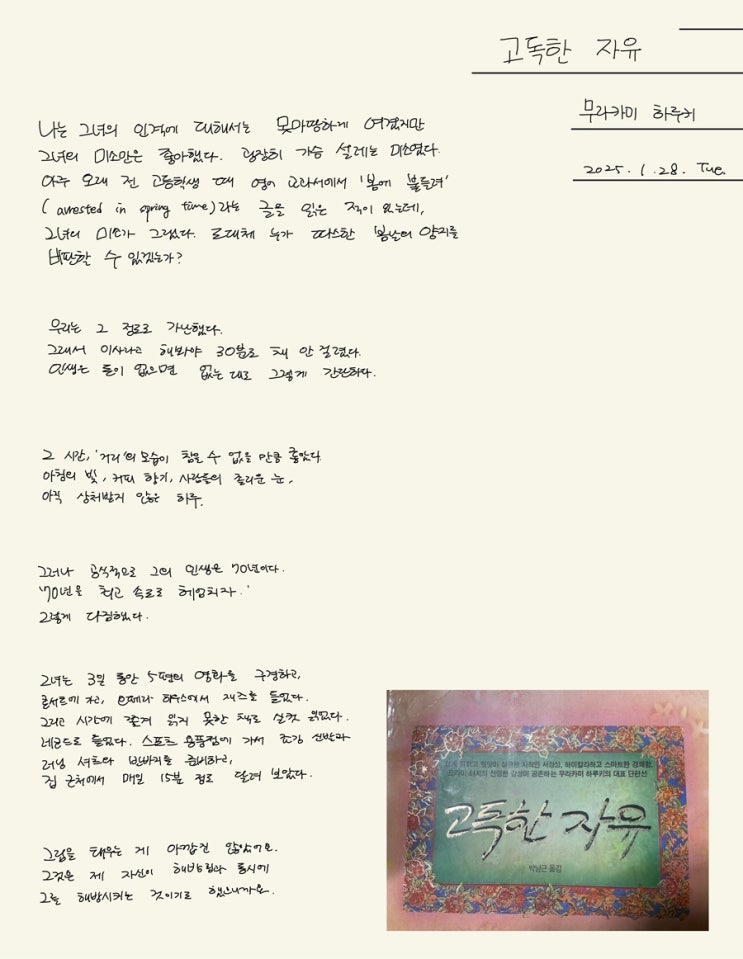 고독한 자유
무라카미 하루키
2025. 1. 28. Tue.
나는 그녀의 인격에 대해서는 못마땅하게 여겼지만
그녀의 미소만은 좋아했다. 굉장히 가슴 설레는 미소였다.
아주 오래 전 고등학생 때 영어 교과서에서 '봄에 붙들려'
(arrested in spring time)라는 글을 읽은 적이 있는데,
그녀의 미소가 그랬다. 도대체 누가 따스한 봄날의 양지를
비판할 수 있겠는가?
우리는 그 정도로 가난했다.
그래서 이사라고 해봐야 30분도 채 안 걸렸다.
인생은 돈이 없으면 없는 대로 그렇게 간단하다.
그 시간, '거리'의 모습이 참을 수 없을 만큼 좋았다.
아침의 빛, 커피 향기, 사람들의 졸리운 눈,
아직 상처받지 않은 하루.
그러나 공식적으로 그의 인생은 70년이다.
'70년을 최고 속도로 헤엄치자.'
그렇게 다짐했다.
그녀는 3일 동안 5편의 영화를 구경하고,
콘서트에 가고, 오페라 하우스에서 재즈를 들었다.
그리고 시간에 쫓겨 읽지 못한 책도 실컷 읽었다.
레코드도 들었다. 스포츠 용품점에 가서 조깅 신발과
러닝 셔츠와 반바지를 준비하고,
집 근처에서 매일 15분 정도 달려 보았다.
그림을 태우는 게 아깝진 않았어요.
그것은 제 자신이 해방됨과 동시에
그를 해방시키는 것이기도 했으니까요.
무라카미 하루키의 대표 단편선
고독한 자유
박남근 옮김